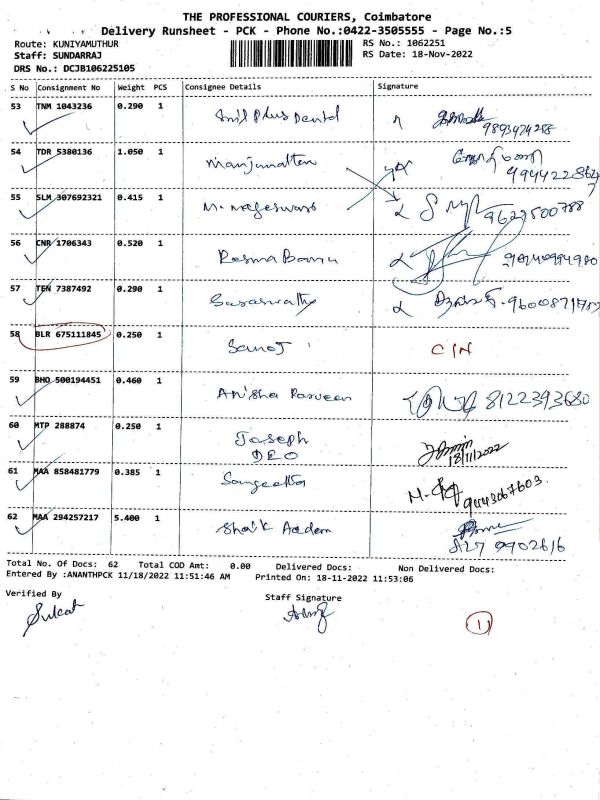 THE PROFESSIONAL COURIERS, Coimbatore
Delivery Runsheet - PCK - Phone No.:0422-3505555 - Page No.:5
Route: KUNIYAMUTHUR
RS No.: 1062251
Staff: SUNDARRAJ
RS Date: 18-Nov-2022
DRS No.: DCJB106225105
S No Consignment No Weight PCS Consignee Details Signature
53 TNM 1043236 0.290 1 Smil Plus Dental
54 TDR 5380136 1.050 1 Manjunathan
55 SLM 307692321 0.415 1 M. Mageswari 9627500788
56 CNR 1706343 0.520 1 Resma Banu
57 TEN 7387492 0.290 1 Saraswathy
58 BLR 675111845 0.250 1 Sanoj C/N
59 BHO 500194451 0.460 1 Anisha Parveen 8122393680
60 MTP 288874 0.250 1 Joseph
DEO 18/11/2022
61 MAA 858481779 0.385 1 Sangeetha 9443067603.
62 MAA 294257217 5.400 1 Shaik Aadam
8127 9902616
Total No. Of Docs: 62 Total COD Amt: 0.00 Delivered Docs: Non Delivered Docs:
Entered By :ANANTHPCK 11/18/2022 11:51:46 AM Printed On: 18-11-2022 11:53:06
Verified By Staff Signature
11